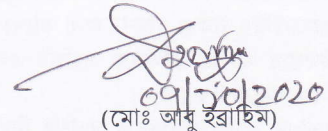 09/10/2020
(মোঃ আবু ইব্রাহিম)